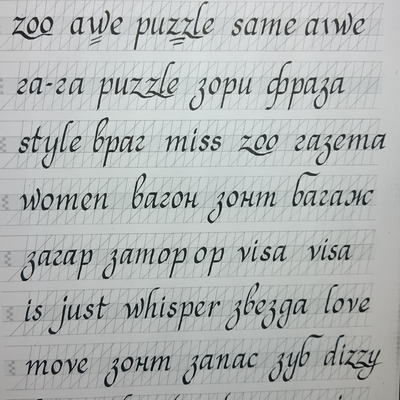 zoo awe puzzle same awe
га-га puzzle зори фраза
style враг miss zoo газета
women вагон зонт багаж
загар затор ор visa visa
is just whisper звезда love
move зонт запас зуб dizzy